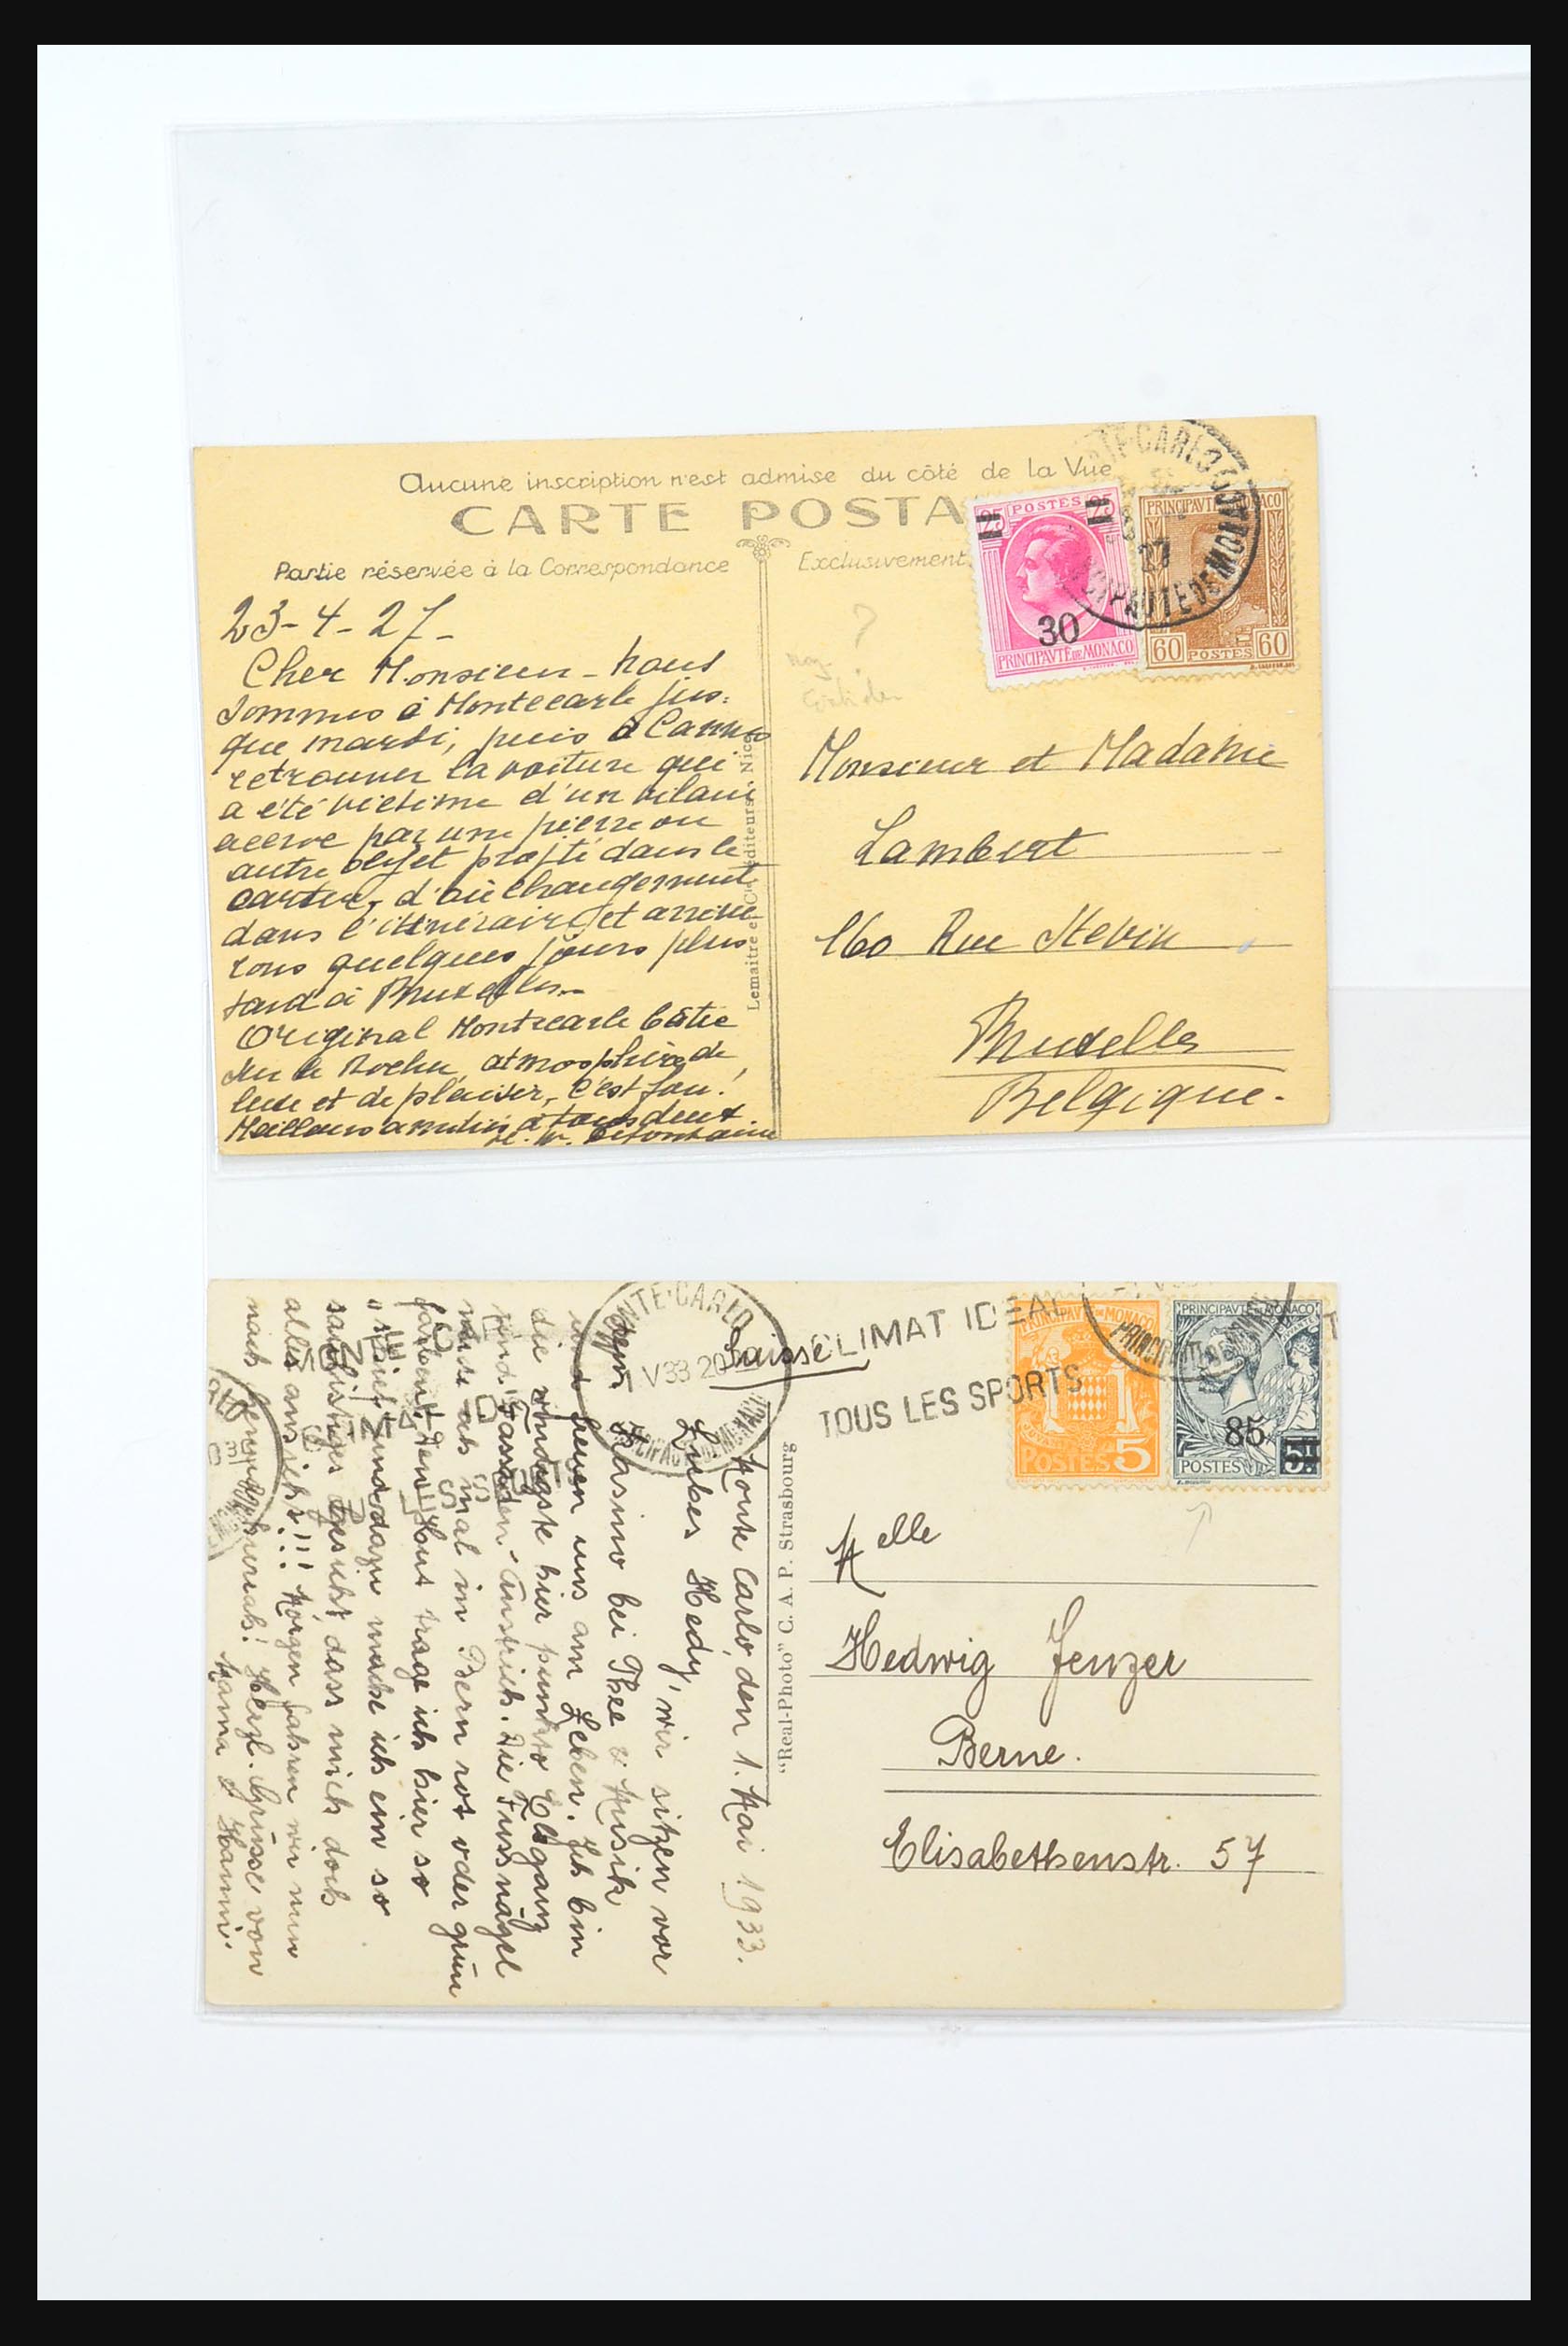 Aucune inscription n'est admise du côté de la Vue
CARTE POSTA
Partie réservée à la Correspondance
Exclusivement
25 POSTES 25
30
PRINCIPAVTÉ DE MONACO
PRINCIPAVTÉ DE MONACO
60 POSTES 60
MONTE-CARLO
27
PRINCIPAUTÉ DE MONACO
23-4-27-
Cher Monsieur - Nous
sommes à Montecarlo jus=
que mardi, puis à Cannes
retrouver la voiture qui
a été victime d'un vilain
par une pierre ou
autre objet projeté dans le
carter, d'où changement
dans l'itinéraire et arrive
rons quelques jours plus
tard à Bruxelles.-
Original Montecarlo bâtie
sur le Rocher, atmosphère de
luxe et de plaisir, c'est fou!
Meilleures amitiés à tous deux
Lemaitre et Cie, éditeurs, Nice
Monsieur et Madame
Lambert
160 Rue Stevin
Bruxelles
Belgique.
MONTE-CARLO
1 V 33 20
PRINCIPAUTÉ DE MONACO
CLIMAT IDÉAL
TOUS LES SPORTS
PRINCIPAVTÉ DE MONACO
POSTES 5
PRINCIPAVTÉ DE MONACO
85
POSTES 5F
Suisse
Monte Carlo, den 1. Mai 1933.
Liebes Hedy, wir sitzen vor
dem Kasino bei Thee & Musik
und freuen uns am Leben. Ich bin
die ruhigste hier punkto Eleganz
und Fassaden-Anstrich. Die Fussnägel
muss ich mal in Bern rot oder grün
färben, den Hut trage ich hier so
und dazu mache ich ein so
Gesicht dass mich doch
alles ansieht!!! Morgen fahren wir nun
nach Herzl. Grüsse von
Mama & Hanni.
"Real-Photo" C. A. P. Strasbourg
Melle
Hedwig Jenzer
Berne.
Elisabethenstr. 57